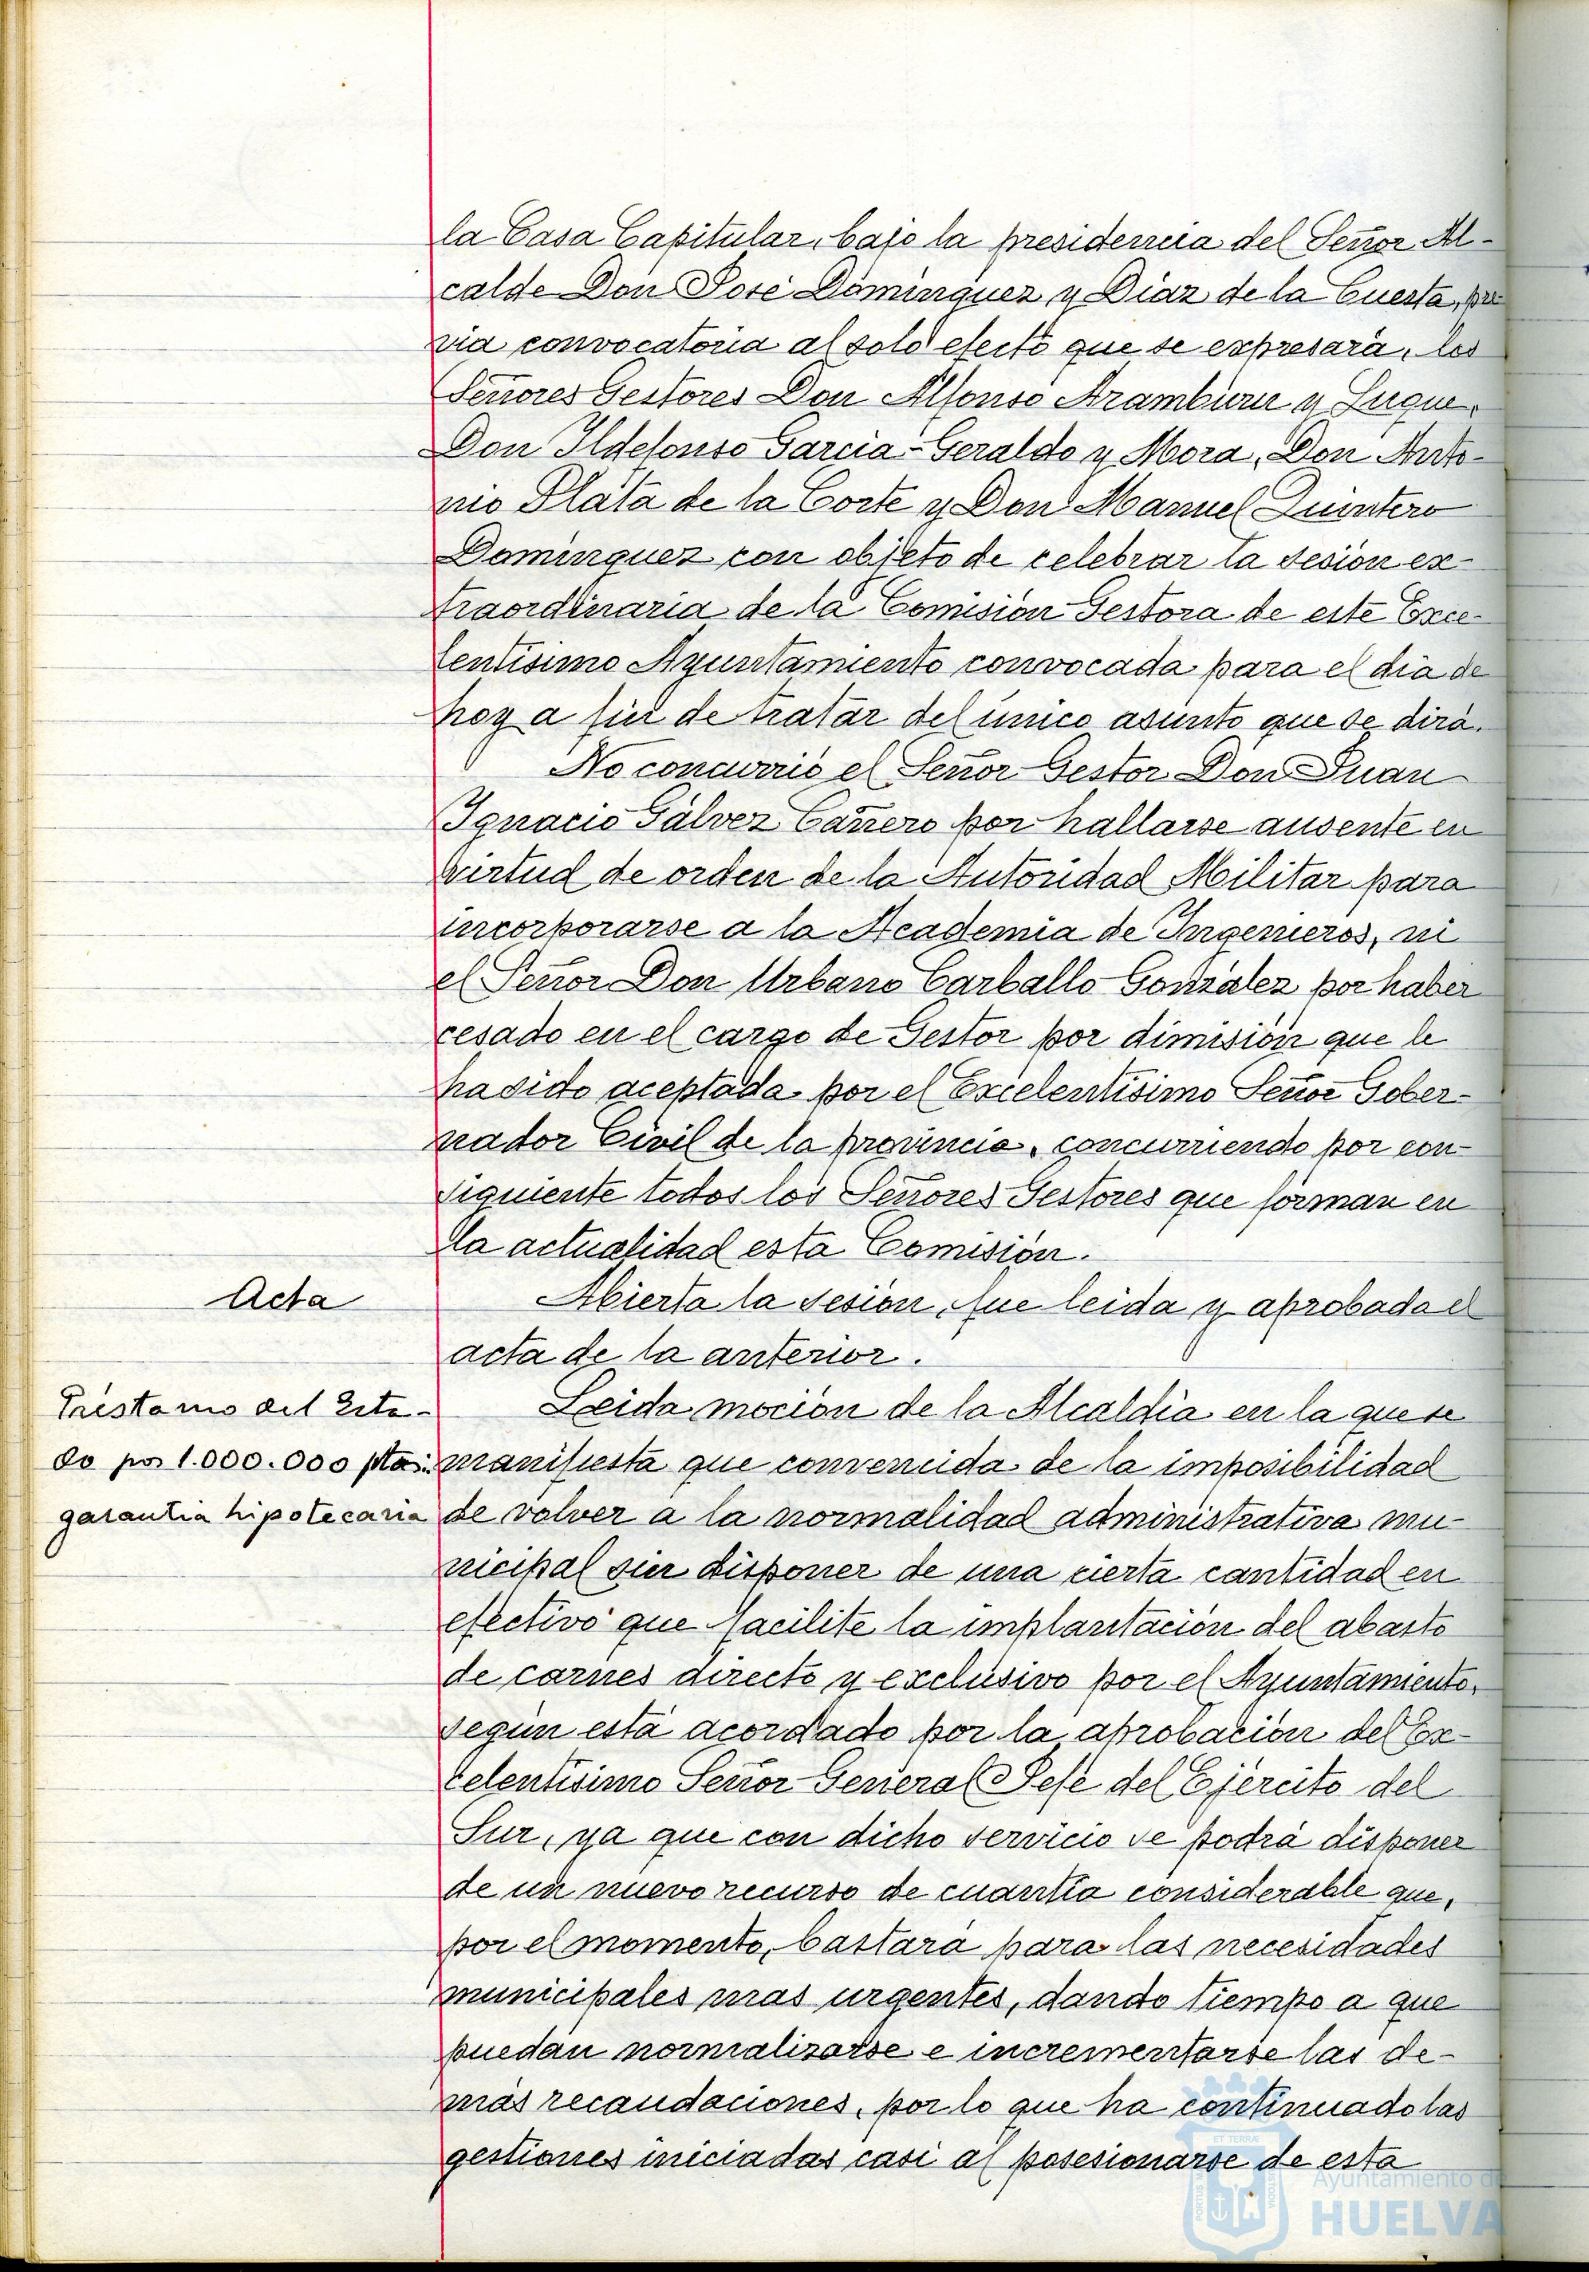 la Casa Capitular, bajo la presidencia del Señor Al-
calde Don José Dominguez y Diaz de la Cuesta, pre
via convocatoria al solo efecto que se expresará, los
Señores Gestores Don Alfonso Aramburu y Luque,
Don Ildefonso Garcia-Geraldo y Mora, Don Anto-
nio Plata de la Corte y Don Manuel Quintero
Dominguez con objeto de celebrar la sesión ex-
traordinaria de la Comisión Gestora de este Exce-
lentisimo Ayuntamiento convocada para el dia de
hoy a fin de tratar del único asunto que se dirá.
No concurrió el Señor Gestor Don Juan
Ignacio Gálvez Cañero por hallarse ausente en
virtud de orden de la Autoridad Militar para
incorporarse a la Academia de Ingenieros, ni
el Señor Don Urbano Carballo González por haber
cesado en el cargo de Gestor por dimisión que le
ha sido aceptada por el Excelentisimo Señor Gober-
nador Civil de la provincia, concurriendo por con-
siguiente todos los Señores Gestores que forman en
la actualidad esta Comisión.
Acta
Abierta la sesión, fue leida y aprobada el
acta de la anterior.
Préstamo del Esta-
do por 1.000.000 ptas.
garantia hipotecaria
Leida moción de la Alcaldia en la que se
manifiesta que convencida de la imposibilidad
de volver a la normalidad administrativa mu-
nicipal sin disponer de una cierta cantidad en
efectivo que facilite la implantación del abasto
de carnes directo y exclusivo por el Ayuntamiento,
según está acordado por la aprobación del Ex-
celentisimo Señor General Jefe del Ejército del
Sur, ya que con dicho servicio se podrá disponer
de un nuevo recurso de cuantia considerable que,
por el momento, bastará para las necesidades
municipales mas urgentes, dando tiempo a que
puedan normalizarse e incrementarse las de-
más recaudaciones, por lo que ha continuado las
gestiones iniciadas casi al posesionarse de esta
ET TERRÆ
PORTUS
CUSTODIA
Ayuntamiento de
HUELVA